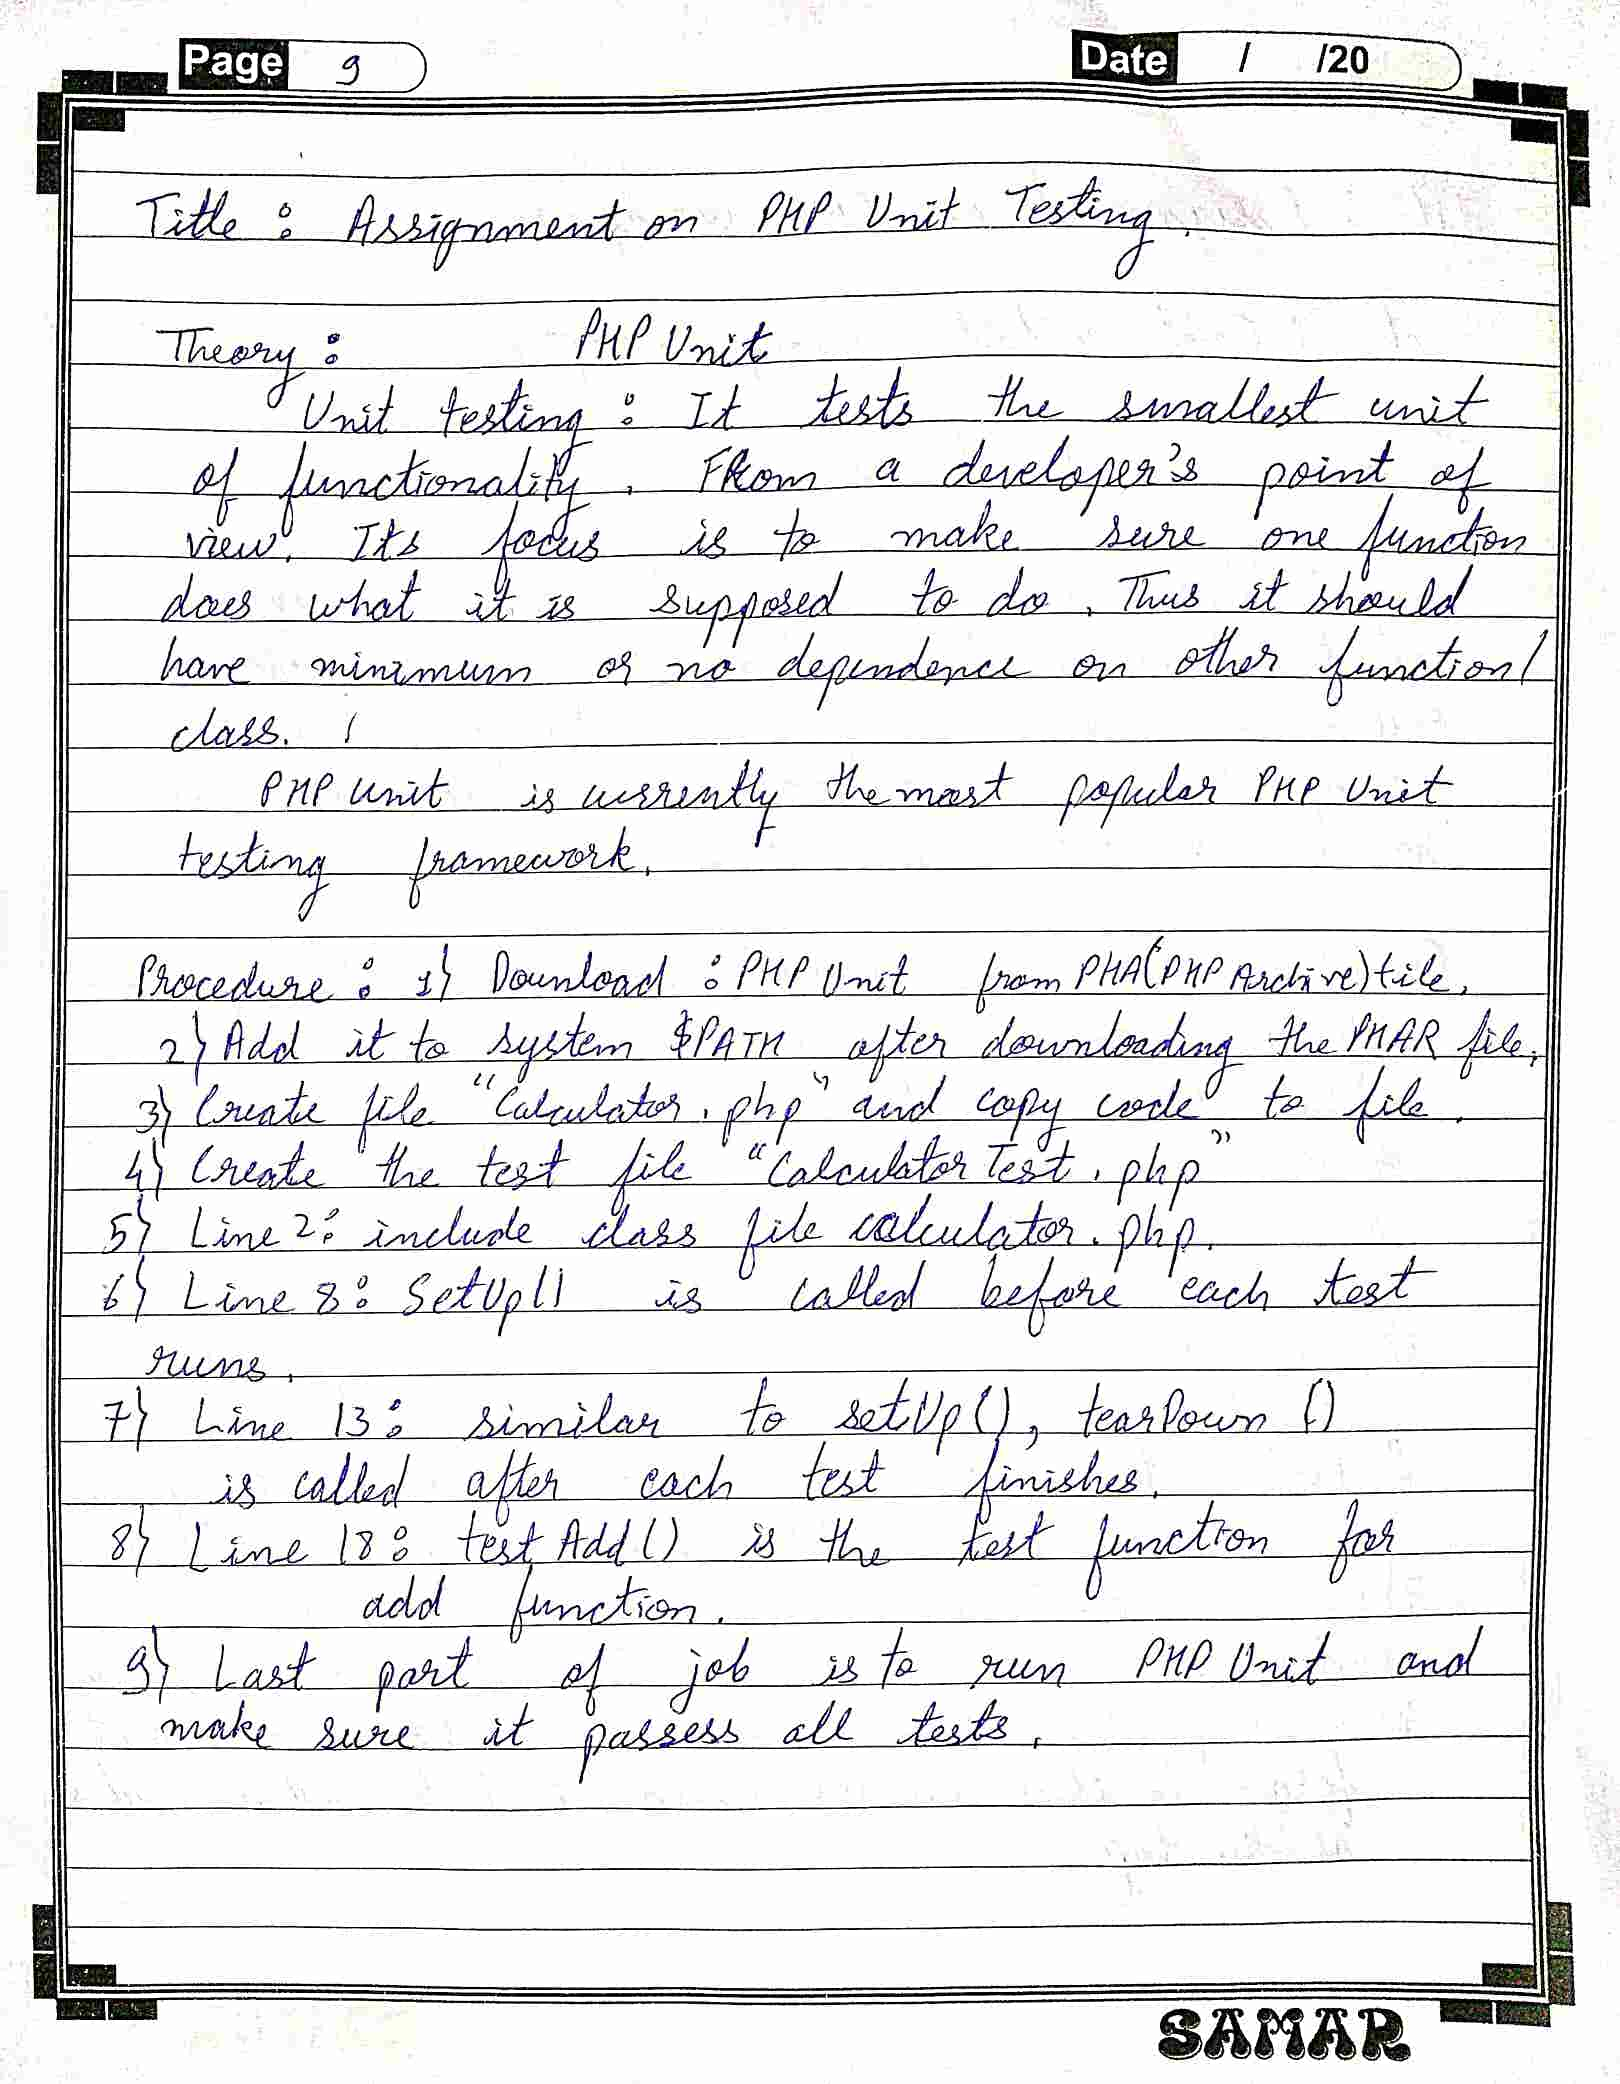 Page 9 Date / /20
Title : Assignment on PHP Unit Testing.
Theory : PHP Unit
Unit testing : It tests the smallest unit
of functionality. From a developer's point of
view. Its focus is to make sure one function
does what it is supposed to do. Thus it should
have minimum or no dependence on other function/
class.
PHP Unit is currently the most popular PHP Unit
testing framework.
Procedure : 1) Download : PHP Unit from PHA(PHP Archive) tile.
2) Add it to system $PATH after downloading the PHAR file.
3) Create file "Calculator.php" and copy code to file.
4) Create the test file "Calculator Test.php"
5) Line 2: include class file calculator.php.
6) Line 8: SetUp() is called before each test
runs.
7) Line 13: similar to setUp(), tearDown ()
is called after each test finishes.
8) Line 18: test Add() is the test function for
add function.
9) Last part of job is to run PHP Unit and
make sure it passess all tests.
SAMAR